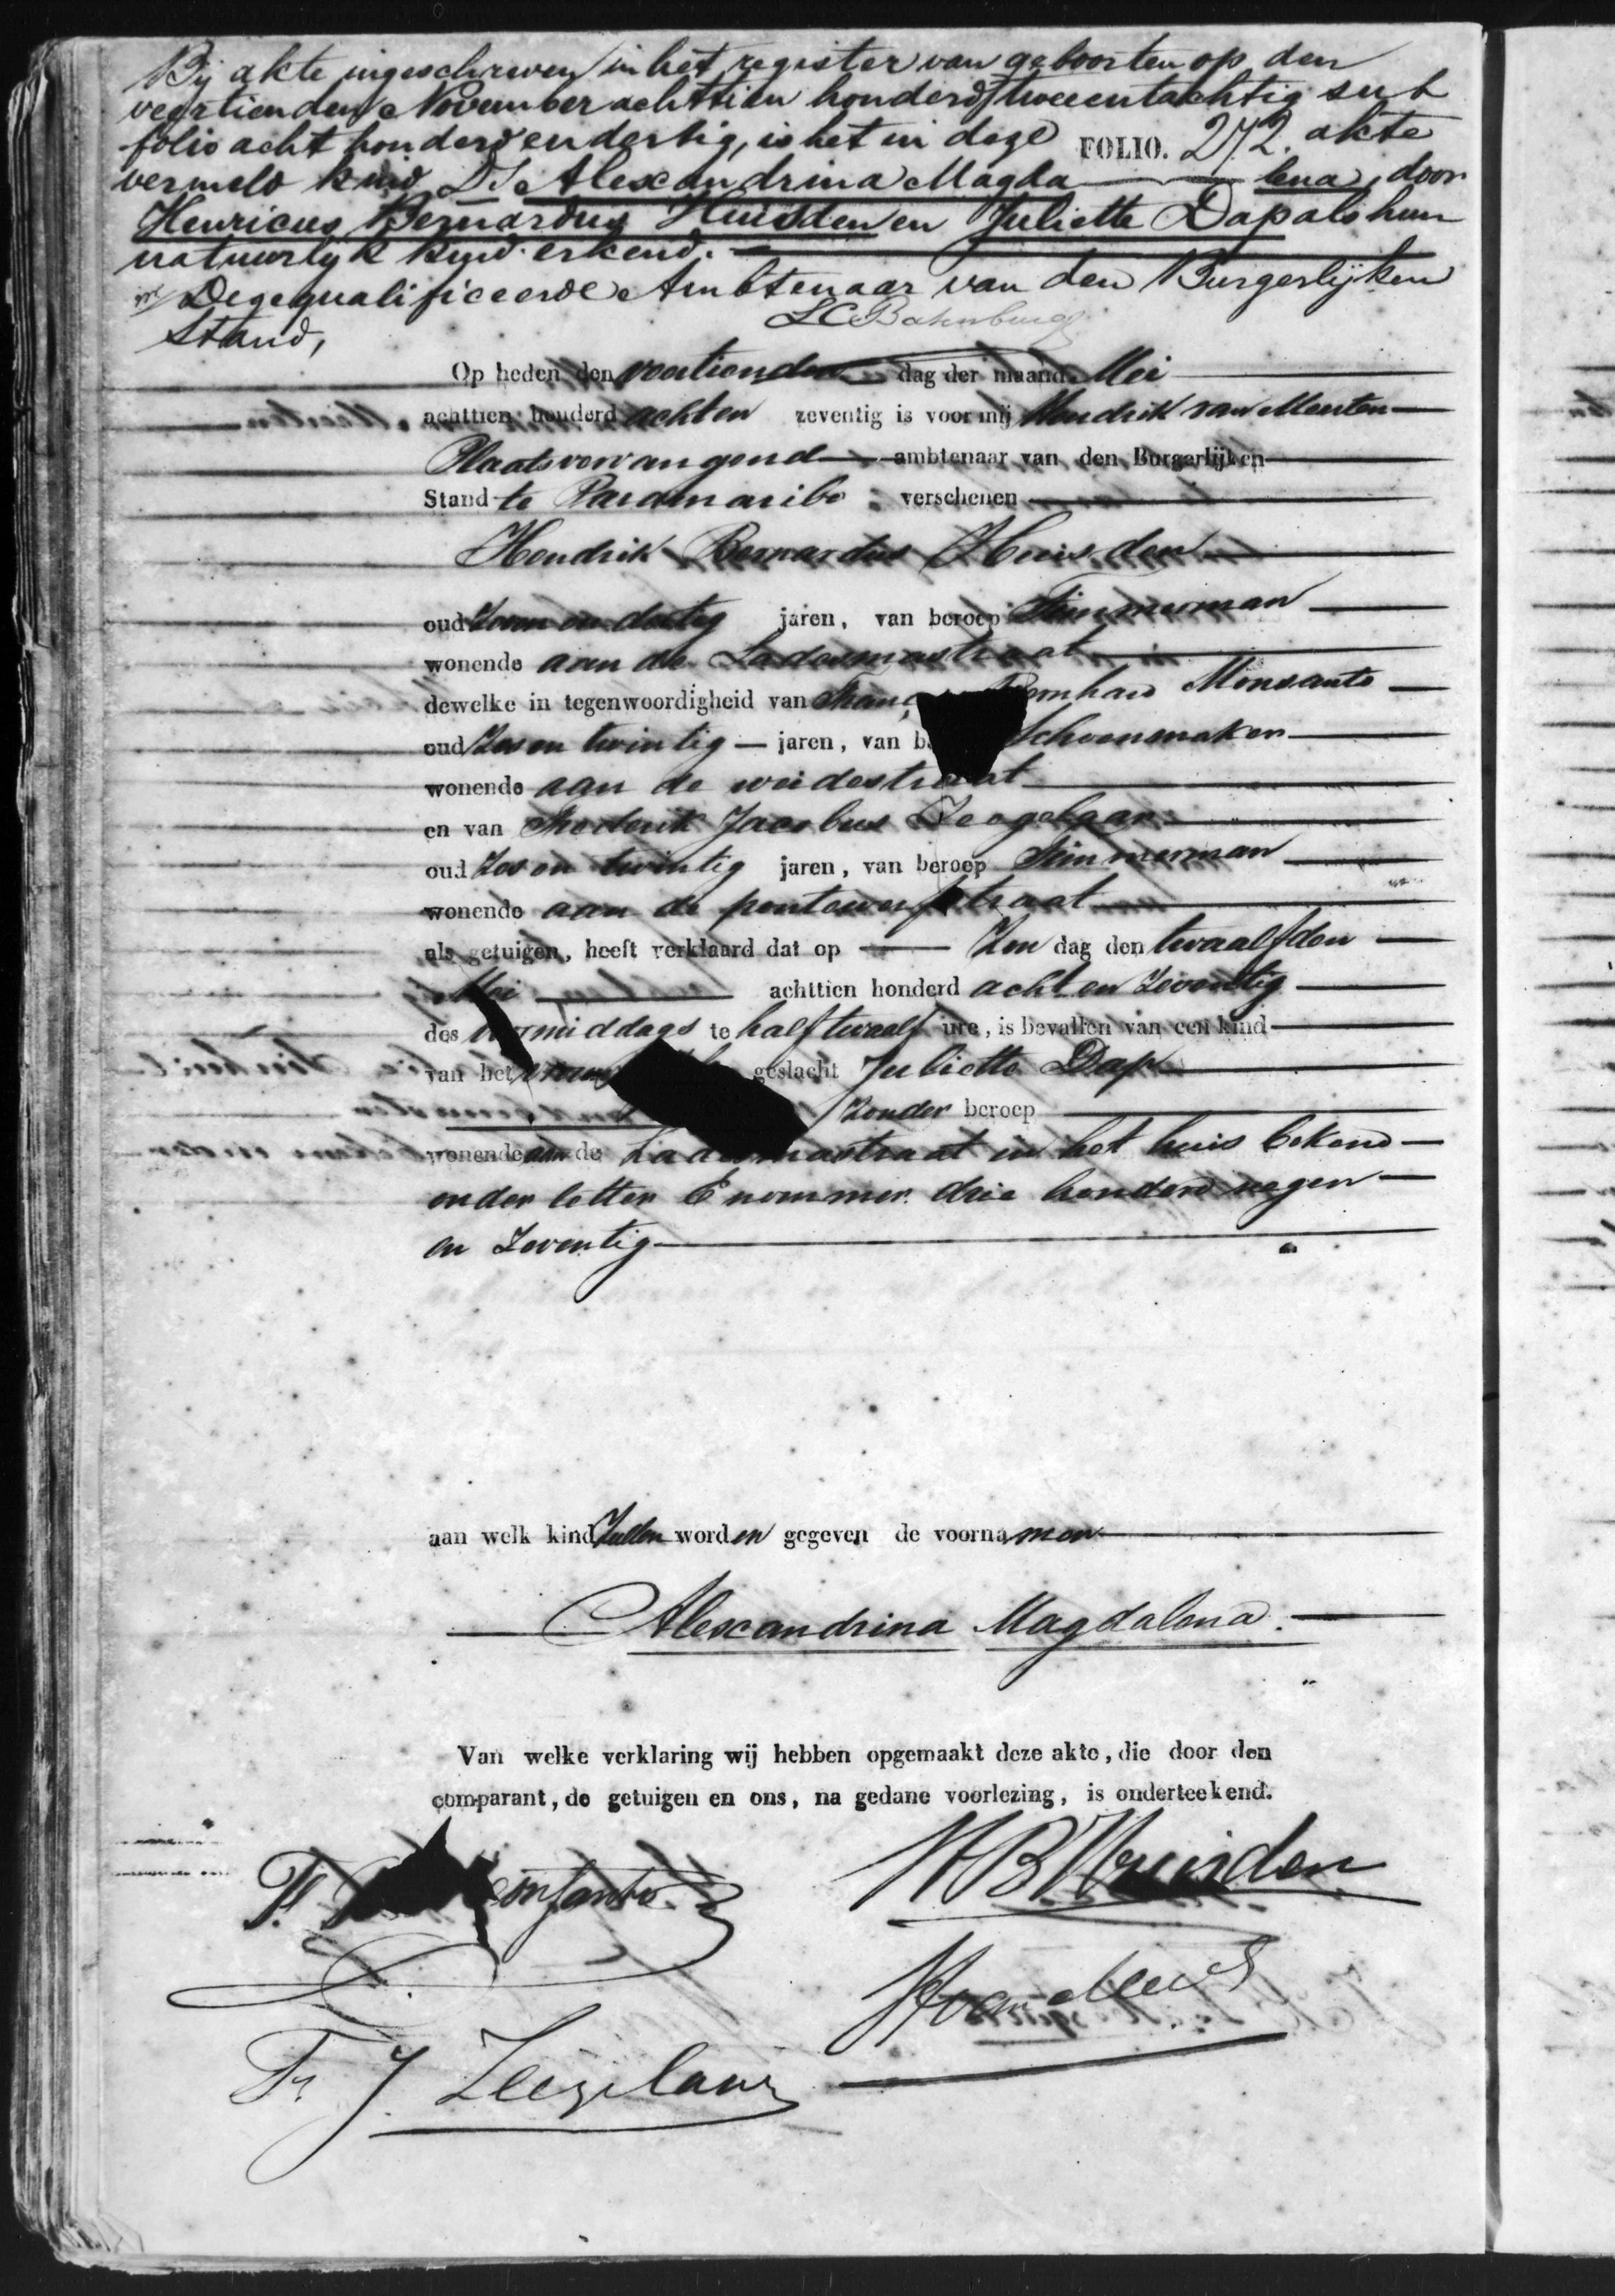 Bij akte ingeschreven in het register van geboorten op den
veertienden November achttien honderd tweeentachtig sub
folio acht honderd en dertig, is het in deze FOLIO. 272. akte
vermeld kind Alexandrina Magda lena, door
Henricus Bernardus Huisden en Juliette Dap als hun
natuurlijk kind erkend.
De gequalificeerde Ambtenaar van den Burgerlijken
Stand,
Op heden den veertienden dag der maand Mei
achttien honderd acht en zeventig is voor mij Hendrik van Meerten
Plaatsvervangend ambtenaar van den Burgerlijken
Stand te Paramaribo verschenen
Hendrik Bernardus Huisden
oud Zeven en dertig jaren, van beroep Timmerman
wonende aan de Ladesmastraat
dewelke in tegenwoordigheid van Monsanto
oud Zes en twintig jaren, van Schoenmaker
wonende aan de weidestraat
en van Frederik Jacobus Zeegelaar
oud Zes en twintig jaren, van beroep Timmerman
wonende aan de pontewerfstraat
als getuigen, heeft verklaard dat op Zon dag den twaalfden
Mei achttien honderd acht en Zeventig
des voormiddags te half twaalf ure, is bevallen van een kind
van het geslacht Juliette Dap
Zonder beroep
wonende aan de Ladesmastraat in het huis bekend
onder letter E nommer drie honderd negen
en Zeventig
aan welk kind Zullen worden gegeven de voornamen
Alexandrina Magdalena.
Van welke verklaring wij hebben opgemaakt deze akte, die door den
comparant, de getuigen en ons, na gedane voorlezing, is onderteekend.
HB Huisden
F. J. Zeegelaar